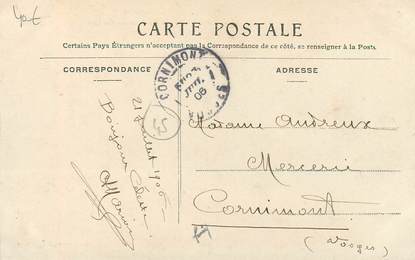 CARTE POSTALE
Certains Pays Étrangers n'acceptant pas la Correspondance de ce côté, se renseigner à la Poste.
CORRESPONDANCE
ADRESSE
CORNIMONT
06
VOSGES
21 Juillet 1906
Bonjour
Madame Andreux
Mercerie
Cornimont
(Vosges)